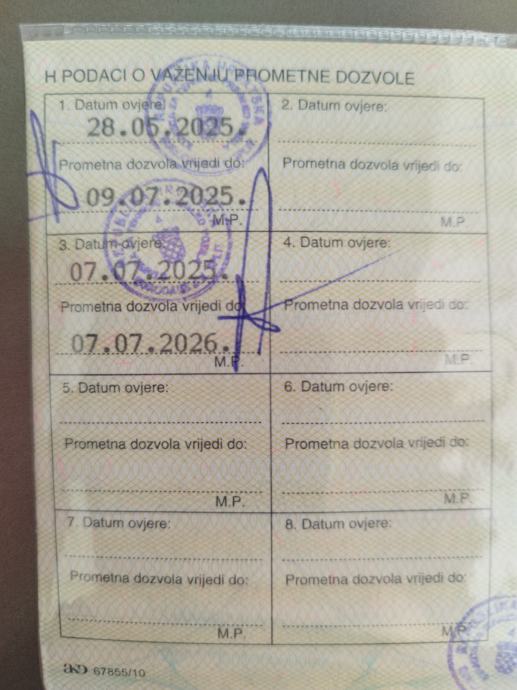 H PODACI O VAŽENJU PROMETNE DOZVOLE
1. Datum ovjere:
28.05.2025.
Prometna dozvola vrijedi do:
09.07.2025.
M.P.
2. Datum ovjere:
Prometna dozvola vrijedi do:
M.P.
3. Datum ovjere:
07.07.2025.
Prometna dozvola vrijedi do:
07.07.2026.
M.P.
4. Datum ovjere:
Prometna dozvola vrijedi do:
M.P.
5. Datum ovjere:
Prometna dozvola vrijedi do:
M.P.
6. Datum ovjere:
Prometna dozvola vrijedi do:
M.P.
7. Datum ovjere:
Prometna dozvola vrijedi do:
M.P.
8. Datum ovjere:
Prometna dozvola vrijedi do:
M.P.
AKD 67855/10